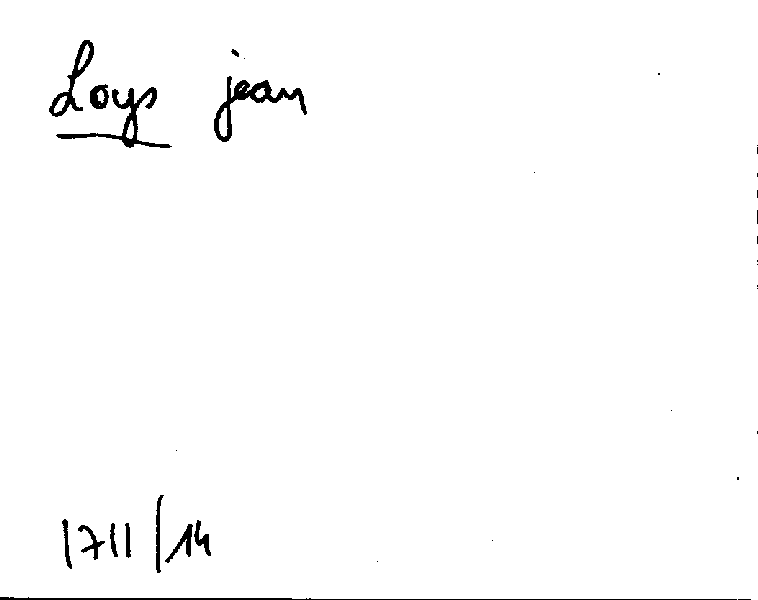 Loys jean
1711/14